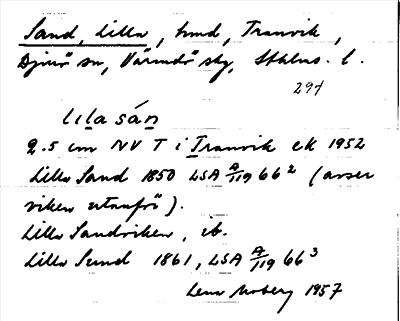 Sand, Lilla, sund, Tranvik,
Djurö sn, Värmdö skg, Sthlms. l.
294
lilasán
2.5 cm NV T i Tranvik ek 1952
Lilla Sand 1850 LSA A/119 66² (avser
viken utanför).
Lilla Sandviken, ib.
Lilla Sund 1861, LSA A/119 66³
Lena Moberg 1957